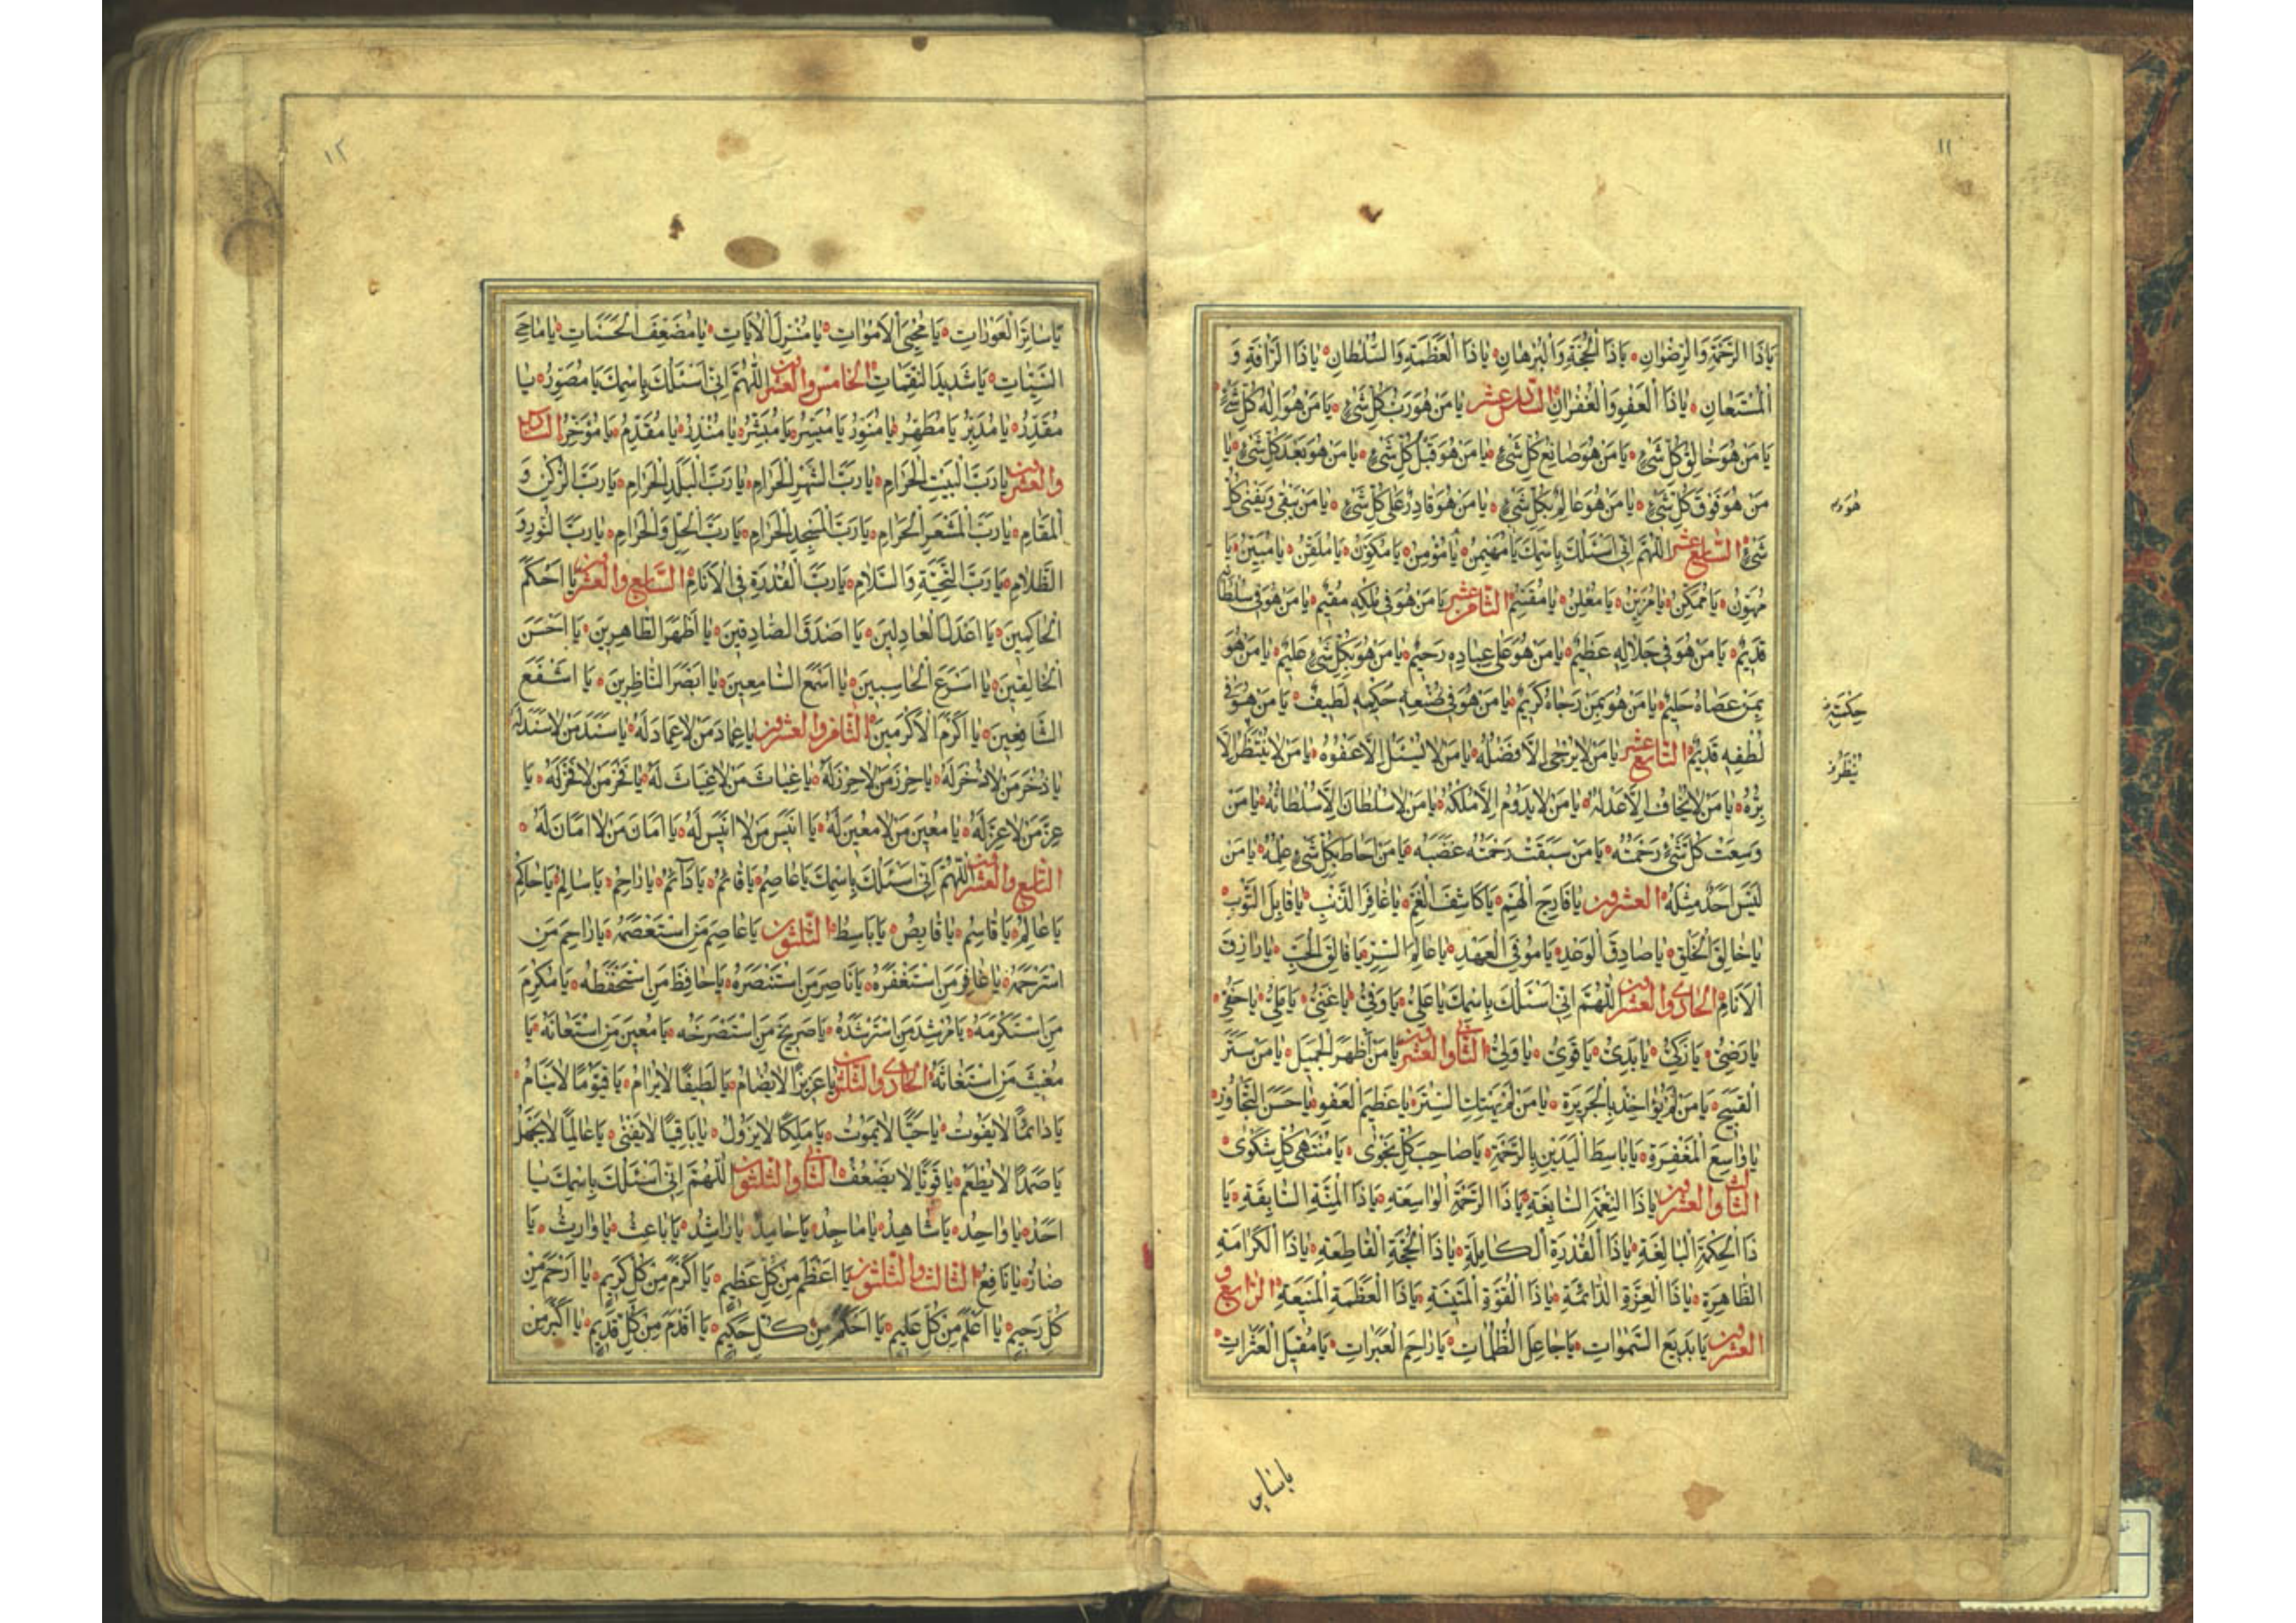 ١١
يَا ذَا الرَّحْمَةِ وَالرِّضْوَانِ يَا ذَا الْحُجَّةِ وَالْبُرْهَانِ يَا ذَا الْعَظَمَةِ وَالسُّلْطَانِ يَا ذَا الرَّأْفَةِ وَ
الْمُسْتَعَانِ يَا ذَا الْعَفْوِ وَالْغُفْرَانِ السادس عشر يَا مَنْ هُوَ رَبُّ كُلِّ شَيْءٍ يَا مَنْ هُوَ إِلَهُ كُلِّ شَيْءٍ
يَا مَنْ هُوَ خَالِقُ كُلِّ شَيْءٍ يَا مَنْ هُوَ صَانِعُ كُلِّ شَيْءٍ يَا مَنْ هُوَ قَبْلَ كُلِّ شَيْءٍ يَا مَنْ هُوَ بَعْدَ كُلِّ شَيْءٍ يَا
مَنْ هُوَ فَوْقَ كُلِّ شَيْءٍ يَا مَنْ هُوَ عَالِمٌ بِكُلِّ شَيْءٍ يَا مَنْ هُوَ قَادِرٌ عَلَى كُلِّ شَيْءٍ يَا مَنْ يَبْقَى وَيَفْنَى كُلُّ
شَيْءٍ السابع عشر اللَّهُمَّ إِنِّي أَسْئَلُكَ بِاسْمِكَ يَا مُهَيْمِنُ يَا مُؤْمِنُ يَا مُكَوِّنُ يَا مُلَقِّنُ يَا مُبَيِّنُ يَا
مُهَوِّنُ يَا مُمَكِّنُ يَا مُزَيِّنُ يَا مُعْلِنُ يَا مُقَسِّمُ الثامن عشر يَا مَنْ هُوَ فِي مُلْكِهِ مُقِيمٌ يَا مَنْ هُوَ فِي سُلْطَانِهِ
قَدِيمٌ يَا مَنْ هُوَ فِي جَلَالِهِ عَظِيمٌ يَا مَنْ هُوَ عَلَى عِبَادِهِ رَحِيمٌ يَا مَنْ هُوَ بِكُلِّ شَيْءٍ عَلِيمٌ يَا مَنْ هُوَ
بِمَنْ عَصَاهُ حَلِيمٌ يَا مَنْ هُوَ بِمَنْ رَجَاهُ كَرِيمٌ يَا مَنْ هُوَ فِي صُنْعِهِ حَكِيمٌ لَطِيفٌ يَا مَنْ هُوَ فِي
لُطْفِهِ قَدِيمٌ التاسع عشر يَا مَنْ لَا يُرْجَى إِلَّا فَضْلُهُ يَا مَنْ لَا يُسْئَلُ إِلَّا عَفْوُهُ يَا مَنْ لَا يُنْتَظَرُ إِلَّا
بِرُّهُ يَا مَنْ لَا يُخَافُ إِلَّا عَدْلُهُ يَا مَنْ لَا يَدُومُ إِلَّا مُلْكُهُ يَا مَنْ لَا سُلْطَانَ إِلَّا سُلْطَانُهُ يَا مَنْ
وَسِعَتْ كُلَّ شَيْءٍ رَحْمَتُهُ يَا مَنْ سَبَقَتْ رَحْمَتُهُ غَضَبَهُ يَا مَنْ أَحَاطَ بِكُلِّ شَيْءٍ عِلْمُهُ يَا مَنْ
لَيْسَ أَحَدٌ مِثْلَهُ العشرون يَا فَارِجَ الْهَمِّ يَا كَاشِفَ الْغَمِّ يَا غَافِرَ الذَّنْبِ يَا قَابِلَ التَّوْبِ
يَا خَالِقَ الْخَلْقِ يَا صَادِقَ الْوَعْدِ يَا مُوفِيَ الْعَهْدِ يَا عَالِمَ السِّرِّ يَا فَالِقَ الْحَبِّ يَا رَازِقَ
الْأَنَامِ الحادي والعشرون اللَّهُمَّ إِنِّي أَسْئَلُكَ بِاسْمِكَ يَا عَلِيُّ يَا وَفِيُّ يَا غَنِيُّ يَا مَلِيُّ يَا حَفِيُّ
يَا رَضِيُّ يَا زَكِيُّ يَا بَدِيُّ يَا قَوِيُّ يَا وَلِيُّ الثاني والعشرون يَا مَنْ أَظْهَرَ الْجَمِيلَ يَا مَنْ سَتَرَ
الْقَبِيحَ يَا مَنْ لَمْ يُؤَاخِذْ بِالْجَرِيرَةِ يَا مَنْ لَمْ يَهْتِكِ السِّتْرَ يَا عَظِيمَ الْعَفْوِ يَا حَسَنَ التَّجَاوُزِ
يَا وَاسِعَ الْمَغْفِرَةِ يَا بَاسِطَ الْيَدَيْنِ بِالرَّحْمَةِ يَا صَاحِبَ كُلِّ نَجْوَى يَا مُنْتَهَى كُلِّ شَكْوَى
الثالث والعشرون يَا ذَا النِّعْمَةِ السَّابِغَةِ يَا ذَا الرَّحْمَةِ الْوَاسِعَةِ يَا ذَا الْمِنَّةِ السَّابِقَةِ يَا
ذَا الْحِكْمَةِ الْبَالِغَةِ يَا ذَا الْقُدْرَةِ الْكَامِلَةِ يَا ذَا الْحُجَّةِ الْقَاطِعَةِ يَا ذَا الْكَرَامَةِ
الظَّاهِرَةِ يَا ذَا الْعِزَّةِ الدَّائِمَةِ يَا ذَا الْقُوَّةِ الْمَتِينَةِ يَا ذَا الْعَظَمَةِ الْمَنِيعَةِ الرابع و
العشرون يَا بَدِيعَ السَّمَوَاتِ يَا جَاعِلَ الظُّلُمَاتِ يَا رَاحِمَ الْعَبَرَاتِ يَا مُقِيلَ الْعَثَرَاتِ
١٢
يَا سَاتِرَ الْعَوْرَاتِ يَا مُحْيِيَ الْأَمْوَاتِ يَا مُنْزِلَ الْآيَاتِ يَا مُضَعِّفَ الْحَسَنَاتِ يَا مَاحِيَ
السَّيِّئَاتِ يَا شَدِيدَ النَّقِمَاتِ الخامس والعشرون اللَّهُمَّ إِنِّي أَسْئَلُكَ بِاسْمِكَ يَا مُصَوِّرُ يَا
مُقَدِّرُ يَا مُدَبِّرُ يَا مُطَهِّرُ يَا مُنَوِّرُ يَا مُيَسِّرُ يَا مُبَشِّرُ يَا مُنْذِرُ يَا مُقَدِّمُ يَا مُؤَخِّرُ السادس
والعشرون يَا رَبَّ الْبَيْتِ الْحَرَامِ يَا رَبَّ الشَّهْرِ الْحَرَامِ يَا رَبَّ الْبَلَدِ الْحَرَامِ يَا رَبَّ الرُّكْنِ وَ
الْمَقَامِ يَا رَبَّ الْمَشْعَرِ الْحَرَامِ يَا رَبَّ الْمَسْجِدِ الْحَرَامِ يَا رَبَّ الْحِلِّ وَالْحَرَامِ يَا رَبَّ النُّورِ وَ
الظَّلَامِ يَا رَبَّ التَّحِيَّةِ وَالسَّلَامِ يَا رَبَّ الْقُدْرَةِ فِي الْأَنَامِ السابع والعشرون يَا أَحْكَمَ
الْحَاكِمِينَ يَا أَعْدَلَ الْعَادِلِينَ يَا أَصْدَقَ الصَّادِقِينَ يَا أَطْهَرَ الطَّاهِرِينَ يَا أَحْسَنَ
الْخَالِقِينَ يَا أَسْرَعَ الْحَاسِبِينَ يَا أَسْمَعَ السَّامِعِينَ يَا أَبْصَرَ النَّاظِرِينَ يَا أَشْفَعَ
الشَّافِعِينَ يَا أَكْرَمَ الْأَكْرَمِينَ الثامن والعشرون يَا عِمَادَ مَنْ لَا عِمَادَ لَهُ يَا سَنَدَ مَنْ لَا سَنَدَ لَهُ
يَا ذُخْرَ مَنْ لَا ذُخْرَ لَهُ يَا حِرْزَ مَنْ لَا حِرْزَ لَهُ يَا غِيَاثَ مَنْ لَا غِيَاثَ لَهُ يَا فَخْرَ مَنْ لَا فَخْرَ لَهُ يَا
عِزَّ مَنْ لَا عِزَّ لَهُ يَا مُعِينَ مَنْ لَا مُعِينَ لَهُ يَا أَنِيسَ مَنْ لَا أَنِيسَ لَهُ يَا أَمَانَ مَنْ لَا أَمَانَ لَهُ
التاسع والعشرون اللَّهُمَّ إِنِّي أَسْئَلُكَ بِاسْمِكَ يَا عَاصِمُ يَا قَائِمُ يَا دَائِمُ يَا رَاحِمُ يَا سَالِمُ يَا حَاكِمُ
يَا عَالِمُ يَا قَاسِمُ يَا قَابِضُ يَا بَاسِطُ الثلثون يَا عَاصِمَ مَنِ اسْتَعْصَمَهُ يَا رَاحِمَ مَنِ
اسْتَرْحَمَهُ يَا غَافِرَ مَنِ اسْتَغْفَرَهُ يَا نَاصِرَ مَنِ اسْتَنْصَرَهُ يَا حَافِظَ مَنِ اسْتَحْفَظَهُ يَا مُكْرِمَ
مَنِ اسْتَكْرَمَهُ يَا مُرْشِدَ مَنِ اسْتَرْشَدَهُ يَا صَرِيخَ مَنِ اسْتَصْرَخَهُ يَا مُعِينَ مَنِ اسْتَعَانَهُ يَا
مُغِيثَ مَنِ اسْتَغَاثَهُ الحادي والثلثون يَا عَزِيزًا لَا يُضَامُ يَا لَطِيفًا لَا يُرَامُ يَا قَيُّومًا لَا يَنَامُ
يَا دَائِمًا لَا يَفُوتُ يَا حَيًّا لَا يَمُوتُ يَا مَلِكًا لَا يَزُولُ يَا بَاقِيًا لَا يَفْنَى يَا عَالِمًا لَا يَجْهَلُ
يَا صَمَدًا لَا يُطْعَمُ يَا قَوِيًّا لَا يَضْعُفُ الثاني والثلثون اللَّهُمَّ إِنِّي أَسْئَلُكَ بِاسْمِكَ يَا
أَحَدُ يَا وَاحِدُ يَا شَاهِدُ يَا مَاجِدُ يَا حَامِدُ يَا رَاشِدُ يَا بَاعِثُ يَا وَارِثُ يَا
ضَارُّ يَا نَافِعُ الثالث والثلثون يَا أَعْظَمَ مِنْ كُلِّ عَظِيمٍ يَا أَكْرَمَ مِنْ كُلِّ كَرِيمٍ يَا أَرْحَمَ مِنْ
كُلِّ رَحِيمٍ يَا أَعْلَمَ مِنْ كُلِّ عَلِيمٍ يَا أَحْكَمَ مِنْ كُلِّ حَكِيمٍ يَا أَقْدَمَ مِنْ كُلِّ قَدِيمٍ يَا أَكْبَرَ مِنْ